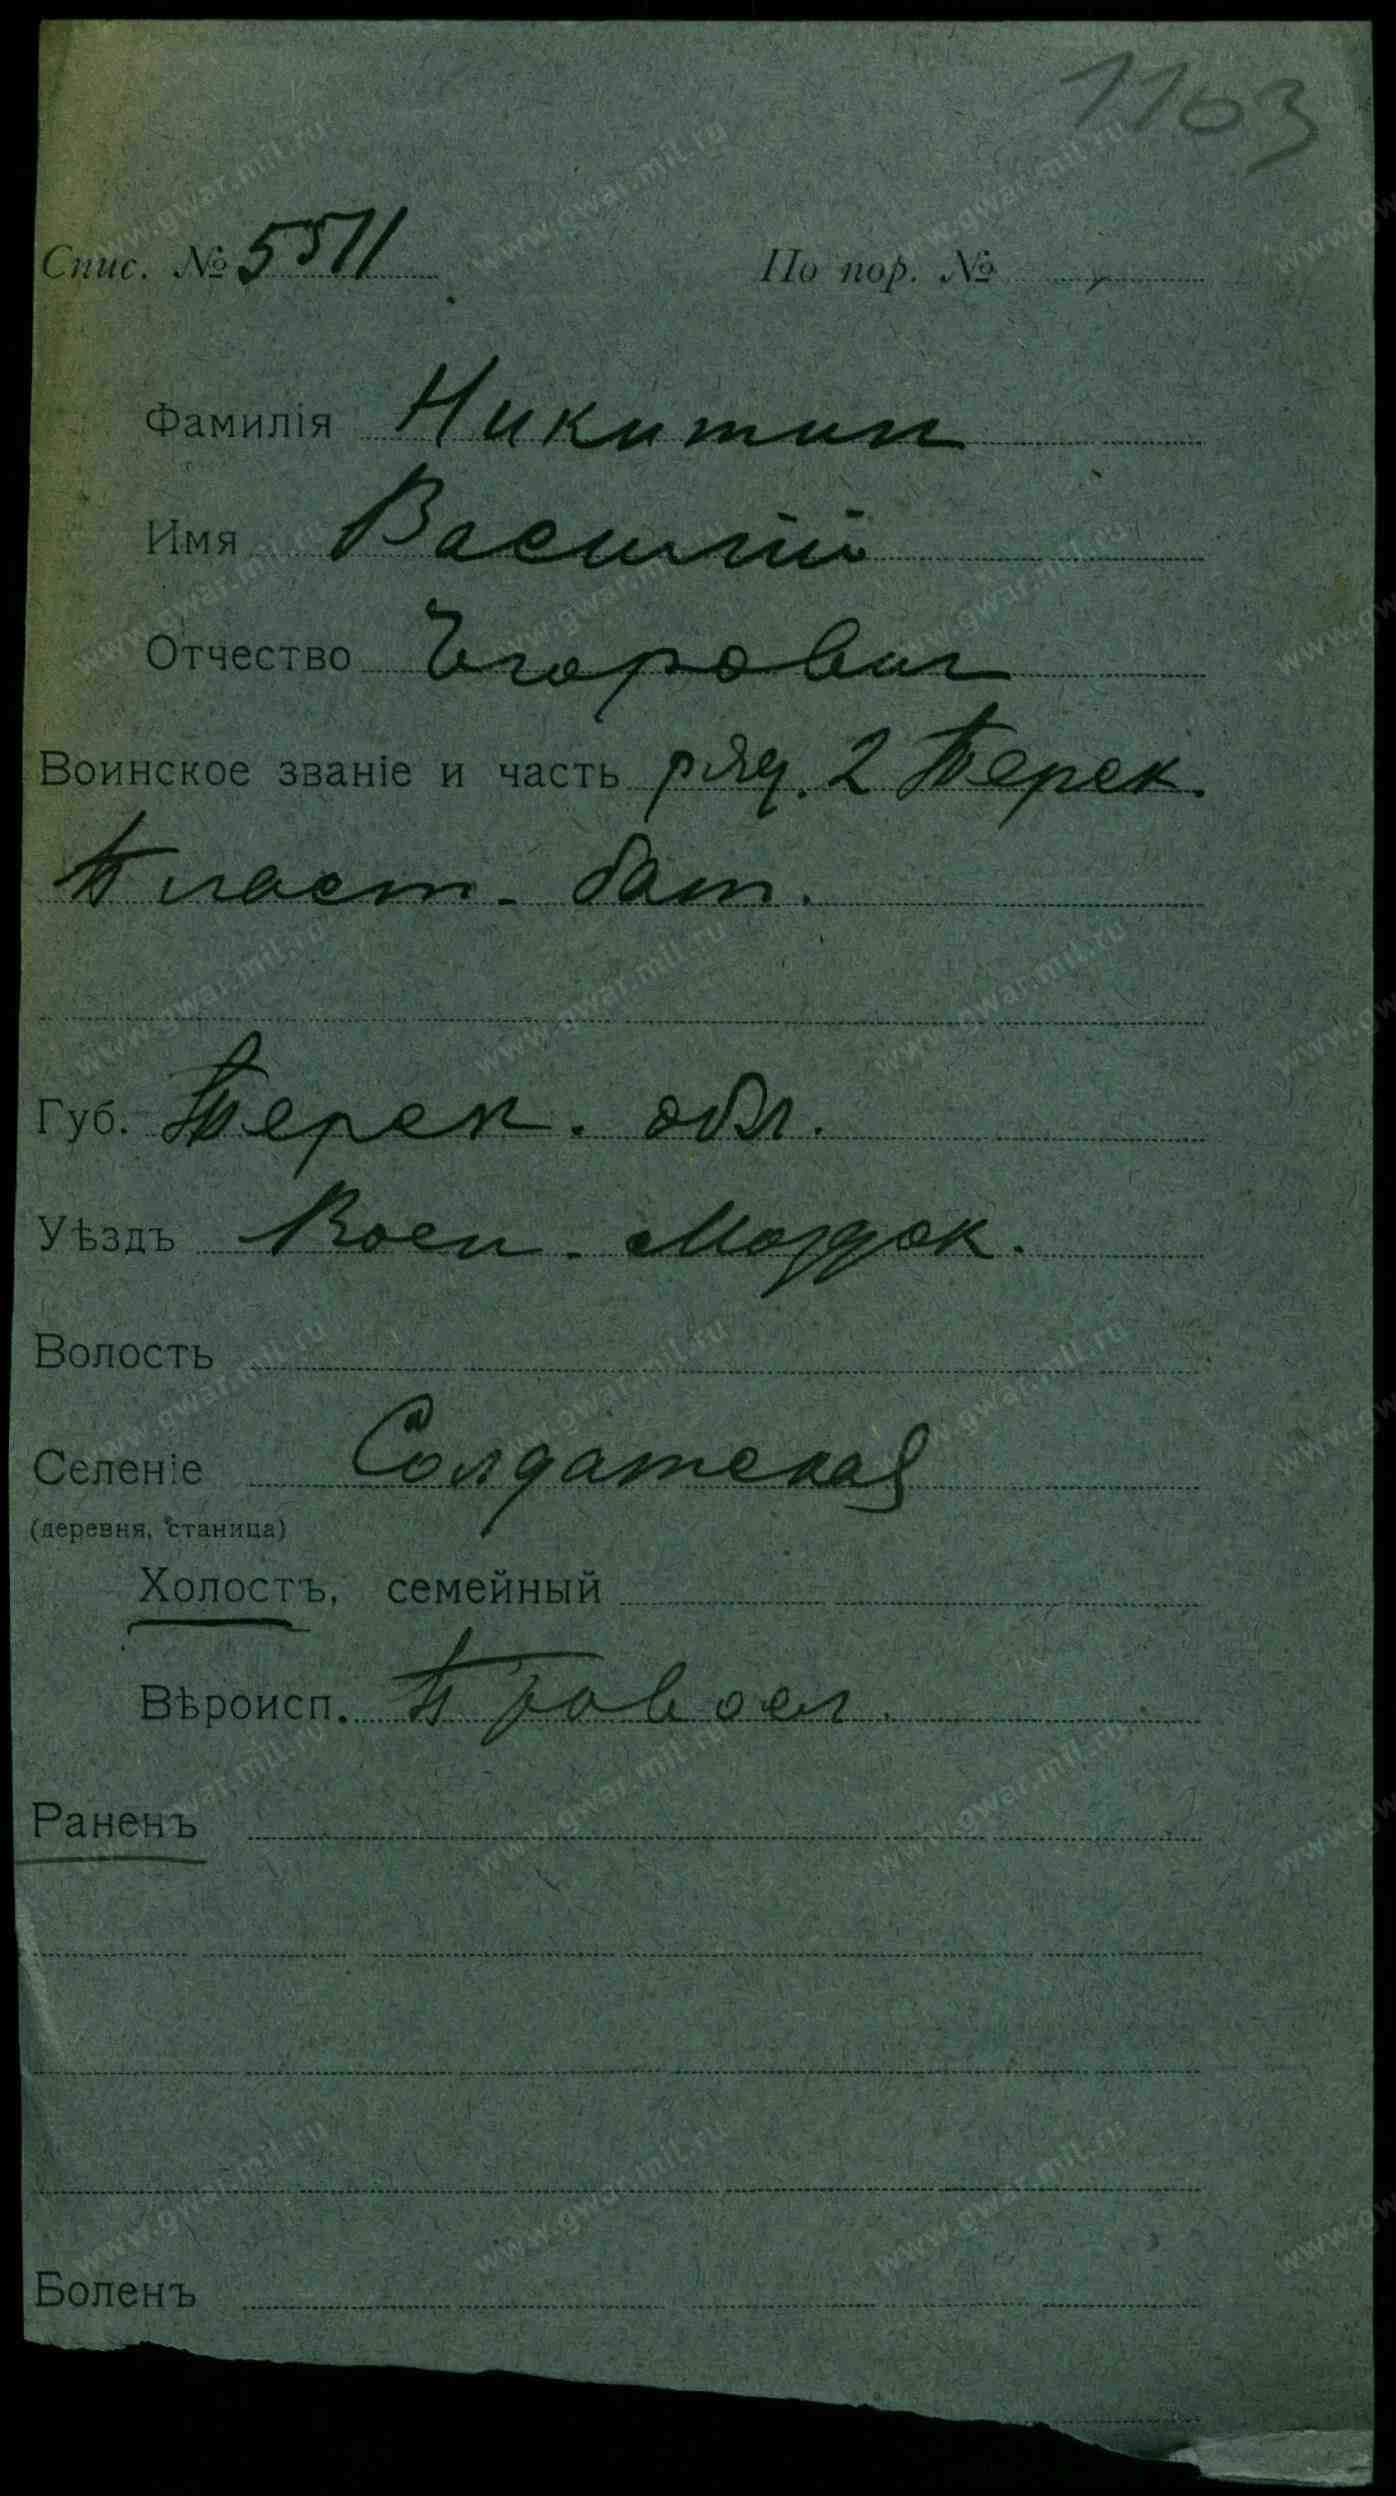 1103
Спис. № 5511 По пор. №
Фамилія Никитин
Имя Василій
Отчество Егорович
Воинское званіе и часть ряд. 2 Терек.
Пласт. бат.
Губ. Терек. обл.
Уѣздъ Воен. Моздок.
Волость
Селеніе Солдатская
(деревня, станица)
Холостъ, семейный
Вѣроисп. Правосл.
Раненъ
Боленъ
www.gwar.mil.ru